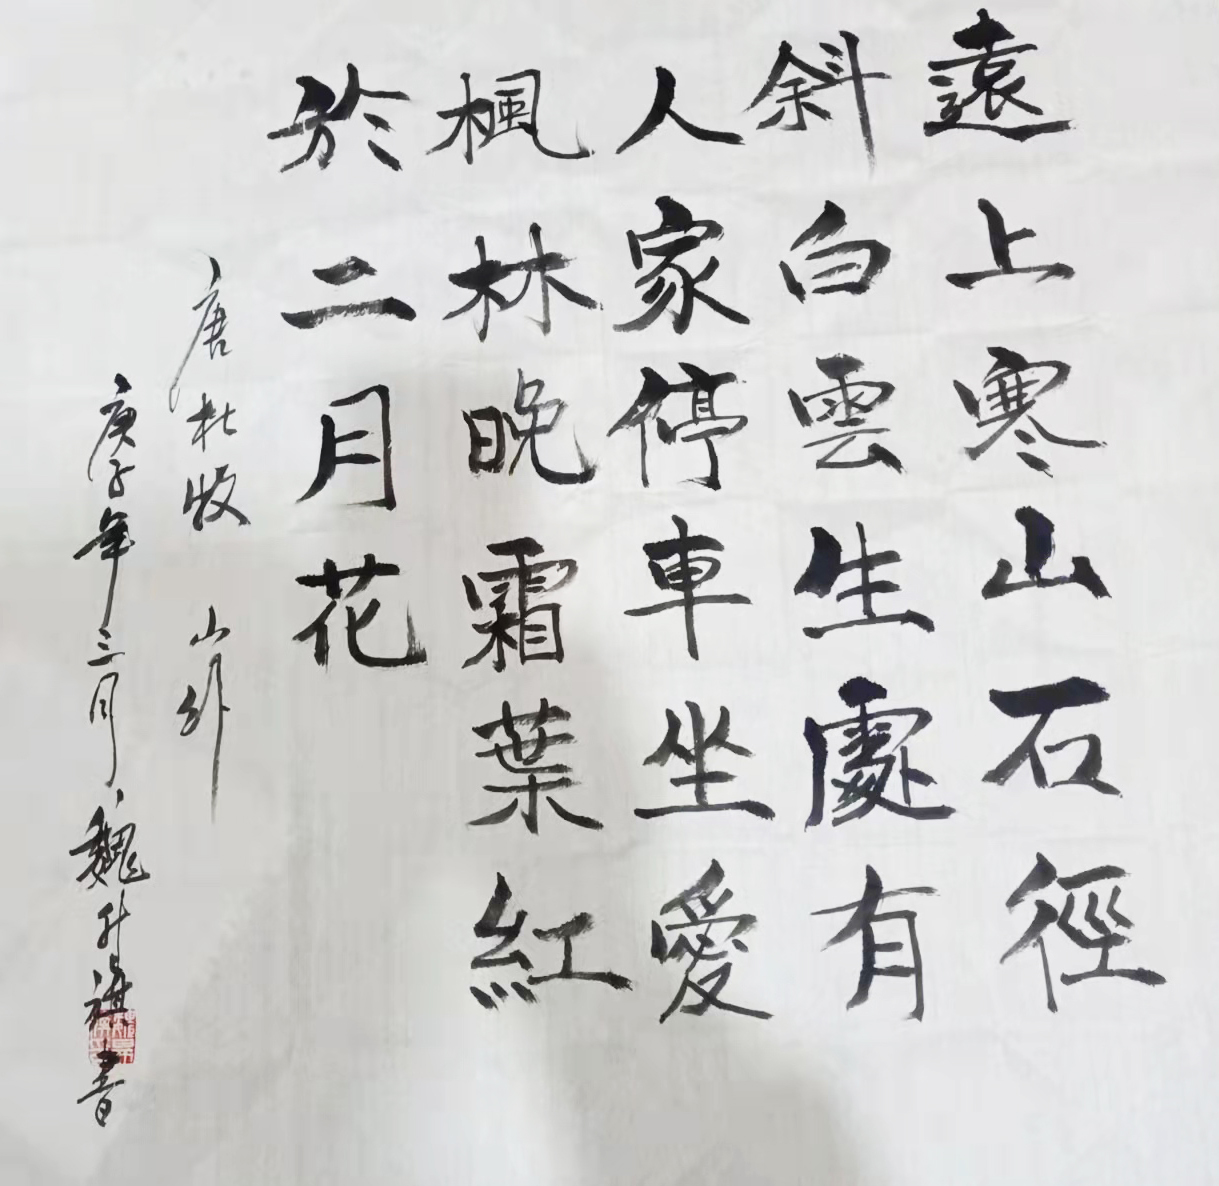 遠上寒山石徑
斜白雲生處有
人家停車坐愛
楓林晚霜葉紅
於二月花
唐杜牧 山行
庚子年三月魏升祺書